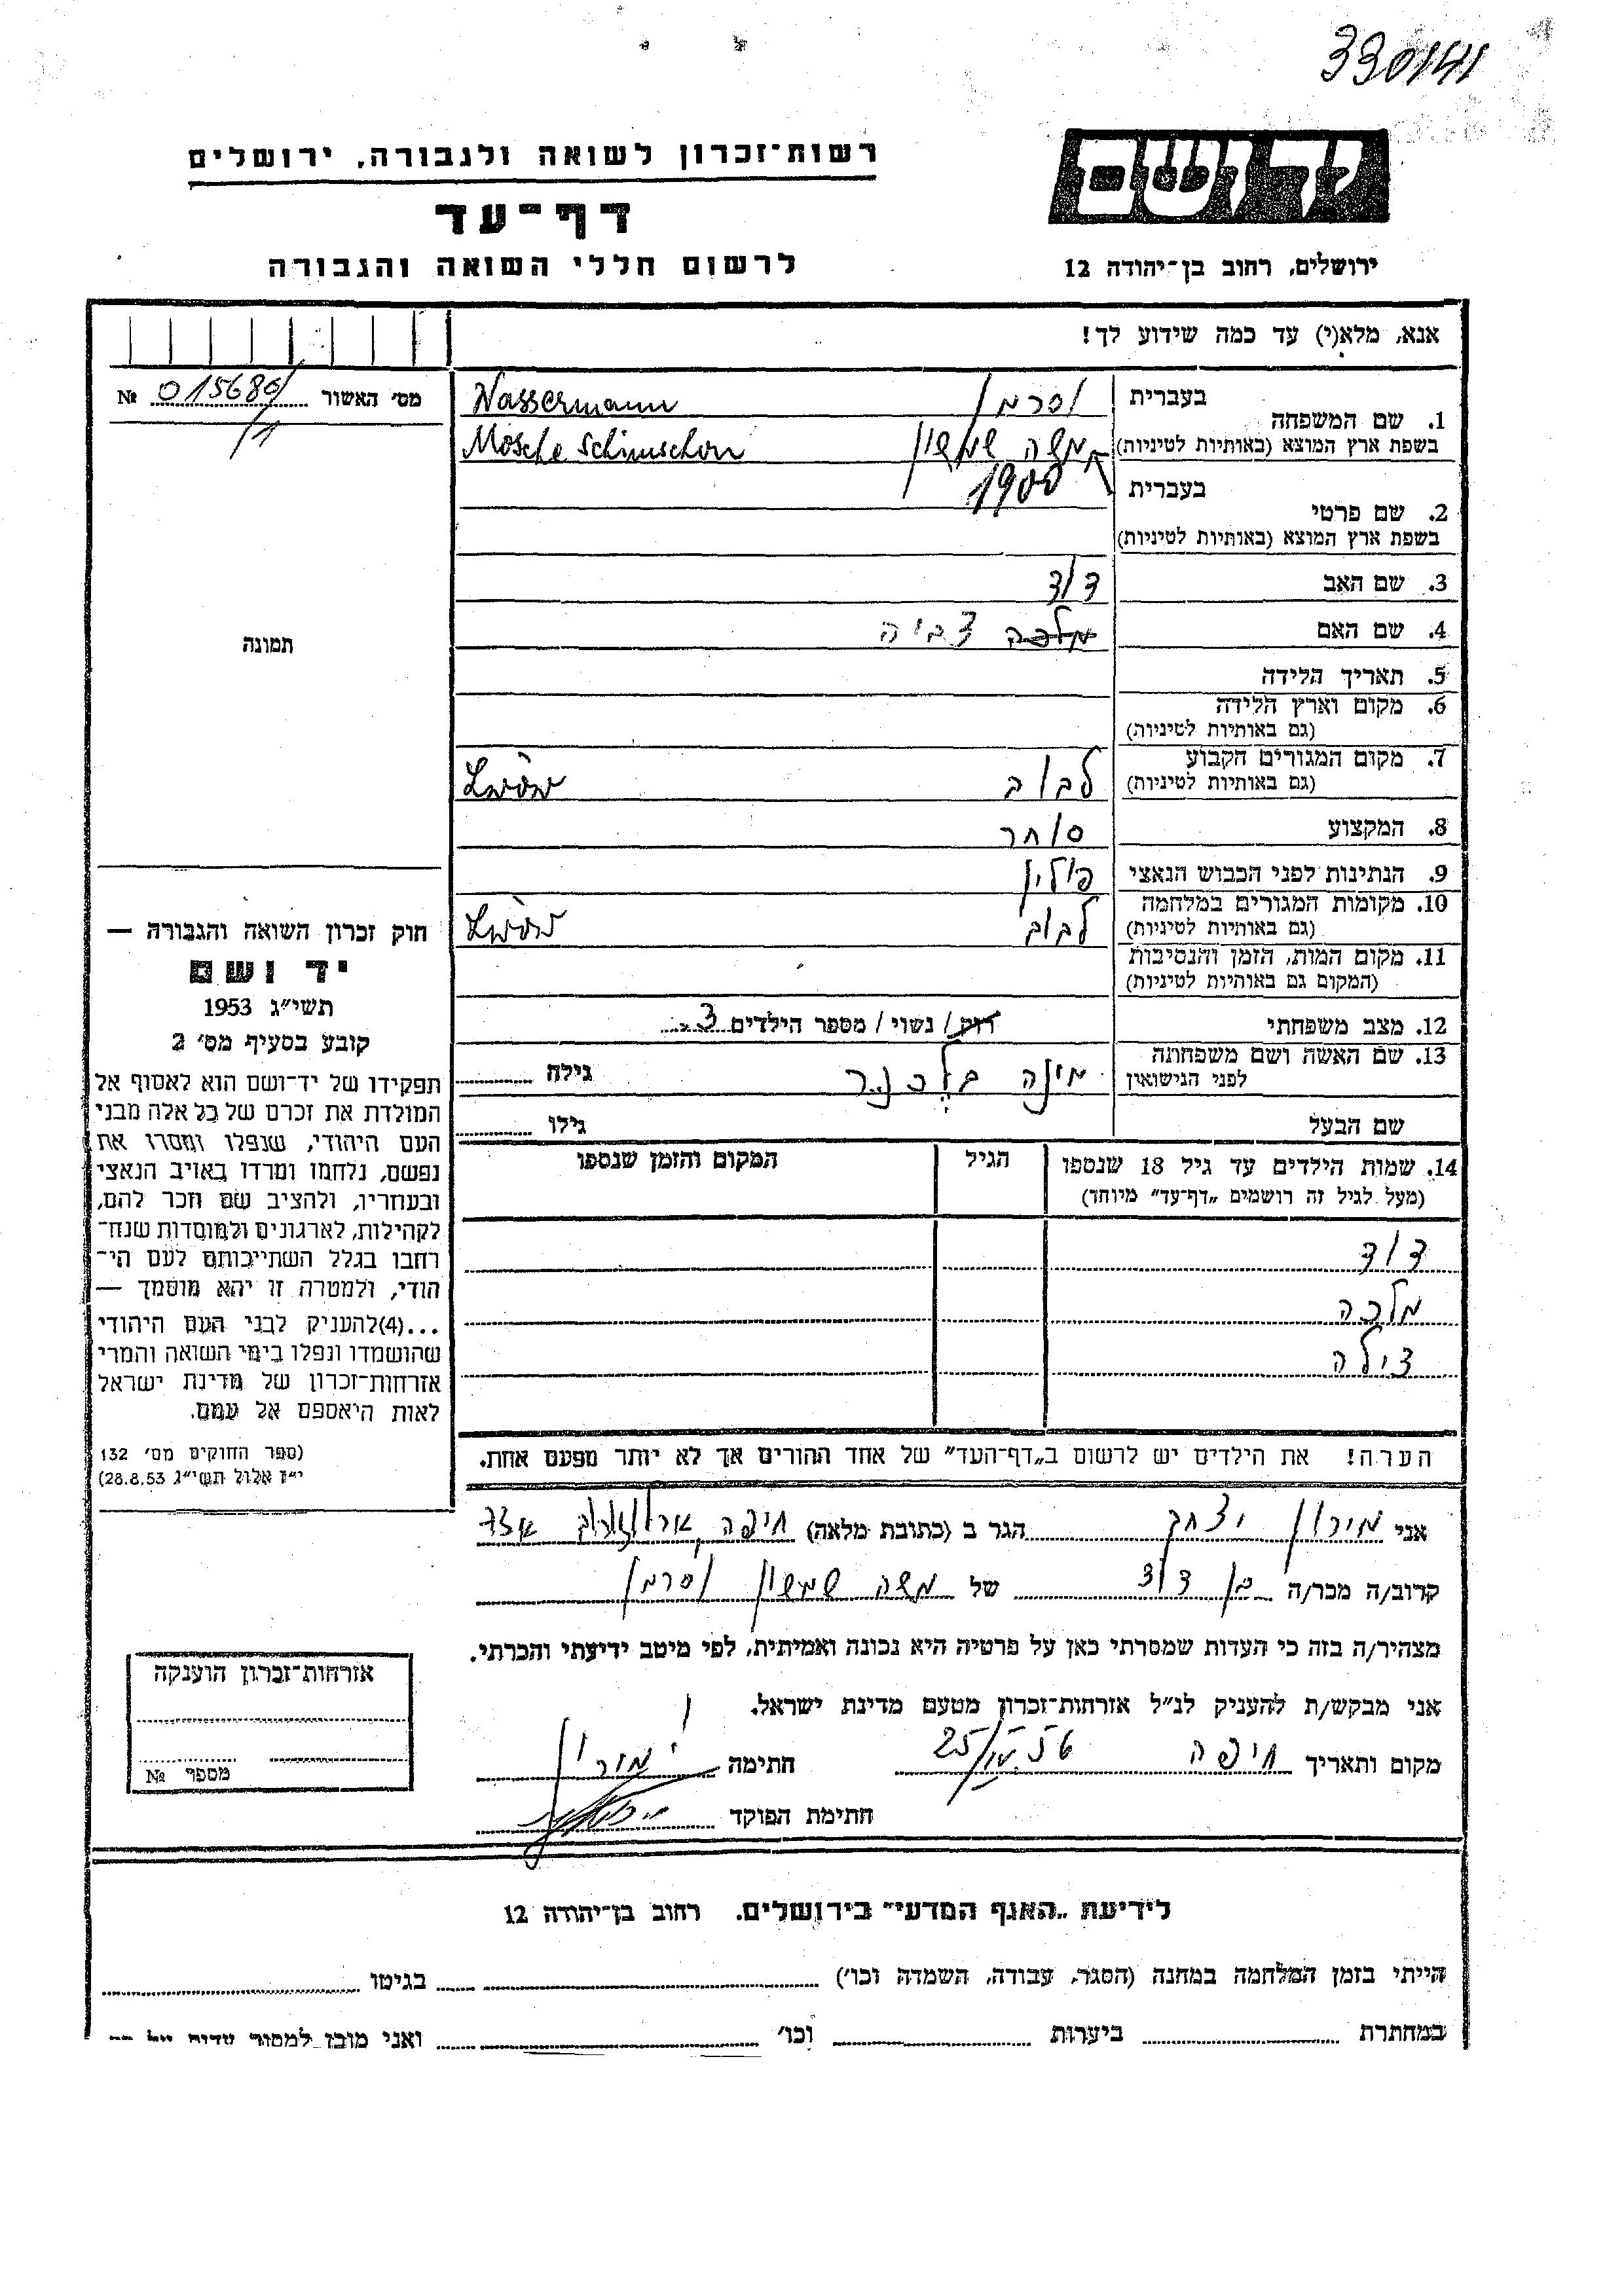 330141
רשות־זכרון לשואה ולגבורה, ירושלים
יד ושם
דף־עד
לרשום חללי השואה והגבורה
ירושלים, רחוב בן־יהודה 12
אנא, מלא(י) עד כמה שידוע לך!
מס׳ האשור 015680 №
1. שם המשפחה בעברית וסרמן Wassermann
בשפת ארץ המוצא (באותיות לטיניות) משה שמשון Mosche Schimschon
בעברית 1900
2. שם פרטי
בשפת ארץ המוצא (באותיות לטיניות)
3. שם האב דוד
4. שם האם מלכה צביה
תמונה
5. תאריך הלידה
6. מקום וארץ הלידה
(גם באותיות לטיניות)
7. מקום המגורים הקבוע לבוב Lwów
(גם באותיות לטיניות)
8. המקצוע סוחר
9. הנתינות לפני הכבוש הנאצי פולין
10. מקומות המגורים במלחמה לבוב Lwów
(גם באותיות לטיניות)
11. מקום המות, הזמן והנסיבות
(המקום גם באותיות לטיניות)
12. מצב משפחתי רוק/ נשוי/ מספר הילדים 3
13. שם האשה ושם משפחתה מינה גילה
לפני הנישואין
שם הבעל גילו
14. שמות הילדים עד גיל 18 שנספו הגיל המקום והזמן שנספו
(מעל לגיל זה רושמים „דף־עד״ מיוחד)
דוד
מלכה
צילה
הערה! את הילדים יש לרשום ב„דף־העד״ של אחד ההורים אך לא יותר מפעם אחת.
חוק זכרון השואה והגבורה —
יד ושם
תשי״ג 1953
קובע בסעיף מס׳ 2
תפקידו של יד־ושם הוא לאסוף אל
המולדת את זכרם של כל אלה מבני
העם היהודי, שנפלו ומסרו את
נפשם, נלחמו ומרדו באויב הנאצי
ובעוזריו, ולהציב שם וזכר להם,
לקהילות, לארגונים ולמוסדות שנח־
רחבו בגלל השתייכותם לעם הי־
הודי, ולמטרה זו יהא מוסמך —
...(4)להעניק לבני העם היהודי
שהושמדו ונפלו בימי השואה והמרי
אזרחות־זכרון של מדינת ישראל
לאות היאספם אל עמם.
(ספר החוקים מס׳ 132
י״ז אלול תשי״ג 28.8.53)
אני מירון יצחק הגר ב (כתובת מלאה) חיפה
קרוב/ה מכר/ה בן דוד של משה שמשון וסרמן
מצהיר/ה בזה כי העדות שמסרתי כאן על פרטיה היא נכונה ואמיתית, לפי מיטב ידיעתי והכרתי.
אני מבקש/ת להעניק לנ״ל אזרחות־זכרון מטעם מדינת ישראל.
מקום ותאריך חיפה חתימה
חתימת הפוקד
אזרחות־זכרון הוענקה
מספר №
לידיעת „האגף המדעי״ בירושלים. רחוב בן־יהודה 12
הייתי בזמן המלחמה במחנה (הסגר, עבודה, השמדה וכו׳) בגיטו
במחתרת ביערות וכו׳ ואני מוכן למסור עדות